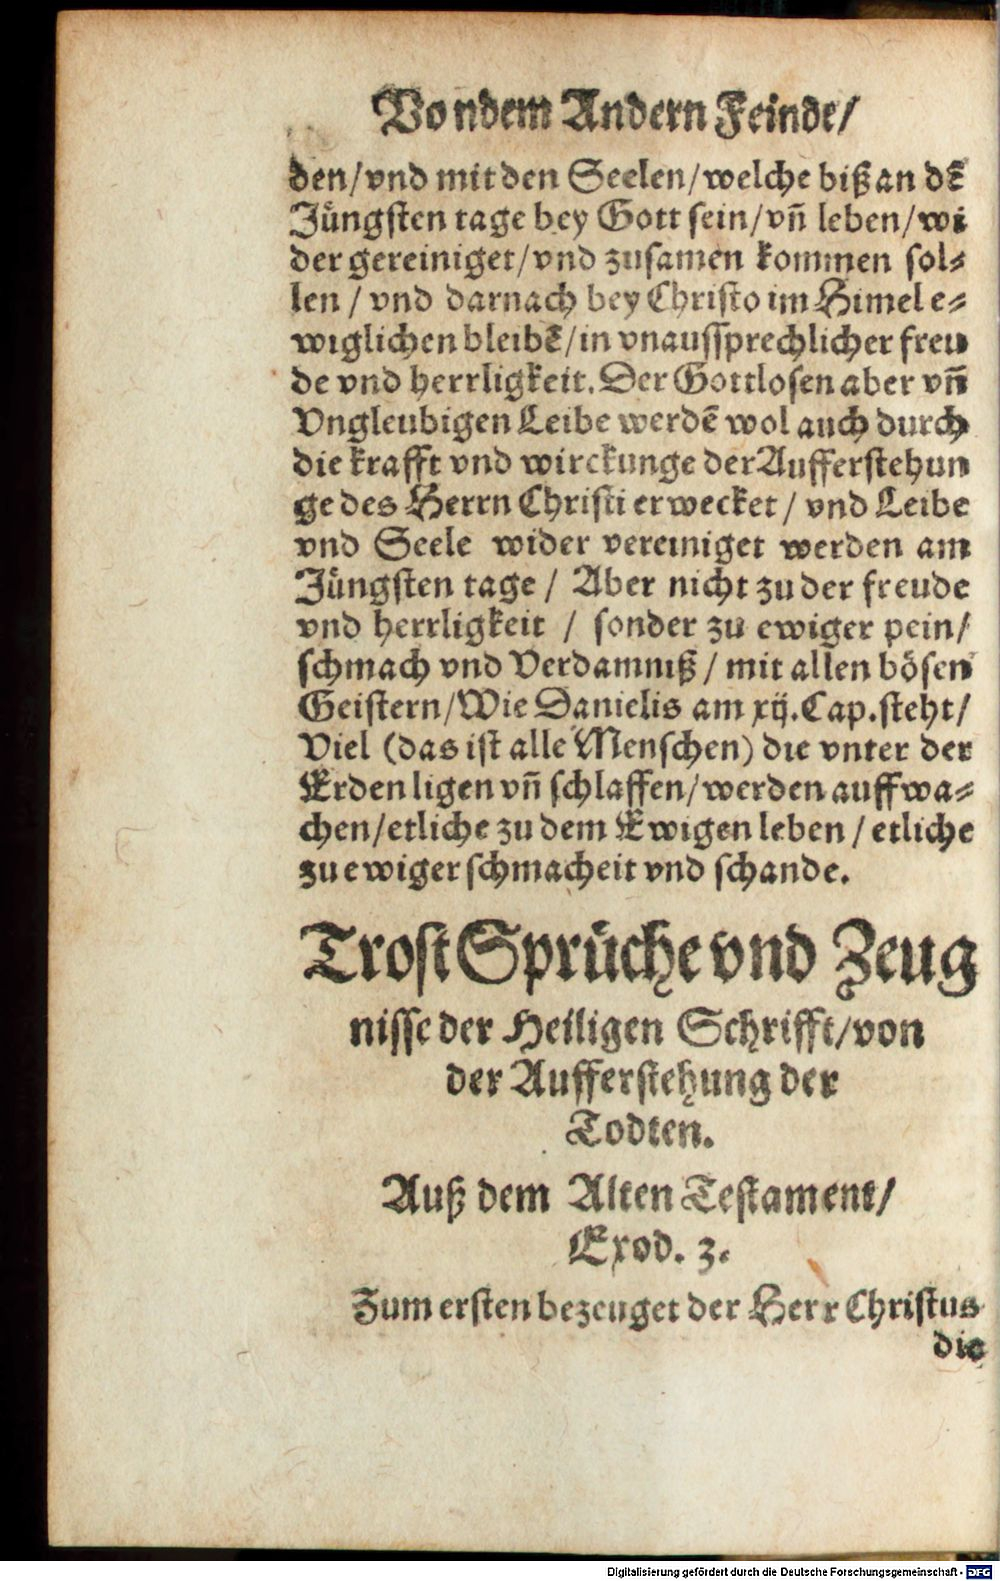 Von dem Andern Feinde/
den/vnd mit den Seelen/welche biß an dē
Jüngsten tage bey Gott sein/vñ leben/wi
der gereiniget/vnd zusamen kommen sol⸗
len / vnd darnach bey Christo im Himel e⸗
wiglichen bleibē/in vnaussprechlicher freu
de vnd herrligkeit. Der Gottlosen aber vñ
Vngleubigen Leibe werdē wol auch durch
die krafft vnd wirckunge der Aufferstehun
ge des Herrn Christi erwecket / vnd Leibe
vnd Seele wider vereiniget werden am
Jüngsten tage / Aber nicht zu der freude
vnd herrligkeit / sonder zu ewiger pein/
schmach vnd Verdamniß / mit allen bösen
Geistern/Wie Danielis am xij. Cap. steht/
Viel (das ist alle Menschen) die vnter der
Erden ligen vñ schlaffen/werden auffwa⸗
chen/etliche zu dem Ewigen leben / etliche
zu ewiger schmacheit vnd schande.
Trost Sprüche vnd Zeug
nisse der Heiligen Schrifft/von
der Aufferstehung der
Todten.
Auß dem Alten Testament/
Exod. 3.
Zum ersten bezeuget der Herr Christus
die
Digitalisierung gefördert durch die Deutsche Forschungsgemeinschaft - DFG